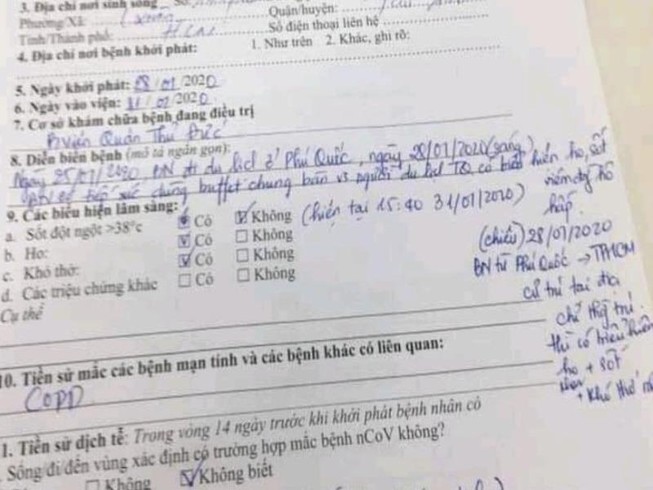 3. Địa chỉ nơi sinh sống
Phường/Xã: Quận/huyện:
Tỉnh/Thành phố: HCM Số điện thoại liên hệ
4. Địa chỉ nơi bệnh khởi phát: 1. Như trên 2. Khác, ghi rõ:
5. Ngày khởi phát: 28/01/2020
6. Ngày vào viện: 31/01/2020
7. Cơ sở khám chữa bệnh đang điều trị
Bviện Quận Thủ Đức
8. Diễn biến bệnh (mô tả ngắn gọn):
Ngày 25/01/2020 BN đi du lịch ở Phú Quốc, ngày 28/01/2020 (sáng)
tiếp xúc dùng buffet chung bàn vs người du lịch TQ có biểu hiện ho, sốt
viêm đg hô
hấp.
9. Các biểu hiện lâm sàng:
a. Sốt đột ngột >38°c Có Không (hiện tại 15:40 31/01/2020)
b. Ho: Có Không
c. Khó thở: Có Không
d. Các triệu chứng khác Có Không
Cụ thể
(chiều) 28/01/2020
BN từ Phú Quốc → TPHCM
cư trú tại địa
chỉ thg trú
thì có biểu hiện
ho + sốt
+ khó thở
10. Tiền sử mắc các bệnh mạn tính và các bệnh khác có liên quan:
COPD
1. Tiền sử dịch tễ: Trong vòng 14 ngày trước khi khởi phát bệnh nhân có
Sống/đi/đến vùng xác định có trường hợp mắc bệnh nCoV không?
Không Không biết